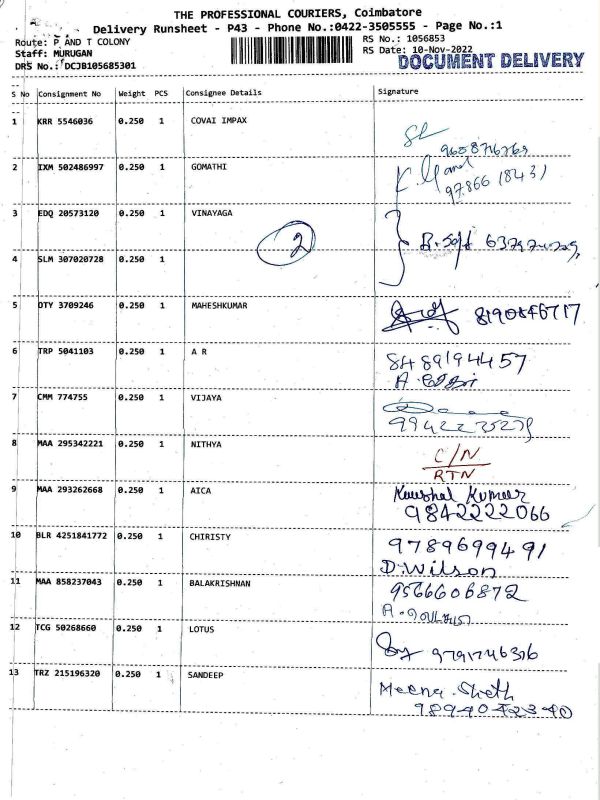 THE PROFESSIONAL COURIERS, Coimbatore
Delivery Runsheet - P43 - Phone No.:0422-3505555 - Page No.:1
Route: P AND T COLONY
RS No.: 1056853
Staff: MURUGAN
RS Date: 10-Nov-2022
DRS No.: DCJB105685301
DOCUMENT DELIVERY
S No Consignment No Weight PCS Consignee Details Signature
1 KRR 5546036 0.250 1 COVAI IMPAX
2 IXM 502486997 0.250 1 GOMATHI
3 EDQ 20573120 0.250 1 VINAYAGA
2
4 SLM 307020728 0.250 1
5 DTY 3709246 0.250 1 MAHESHKUMAR
8190846717
6 TRP 5041103 0.250 1 A R
8489194457
7 CMM 774755 0.250 1 VIJAYA
8 MAA 295342221 0.250 1 NITHYA
C/N
RTN
9 MAA 293262668 0.250 1 AICA
Kaushal Kumar
9842222066
10 BLR 4251841772 0.250 1 CHIRISTY
9789699491
D.Wilson
11 MAA 858237043 0.250 1 BALAKRISHNAN
9566606872
12 TCG 50268660 0.250 1 LOTUS
9791746316
13 TRZ 215196320 0.250 1 SANDEEP
Meena Sheth
9894042340